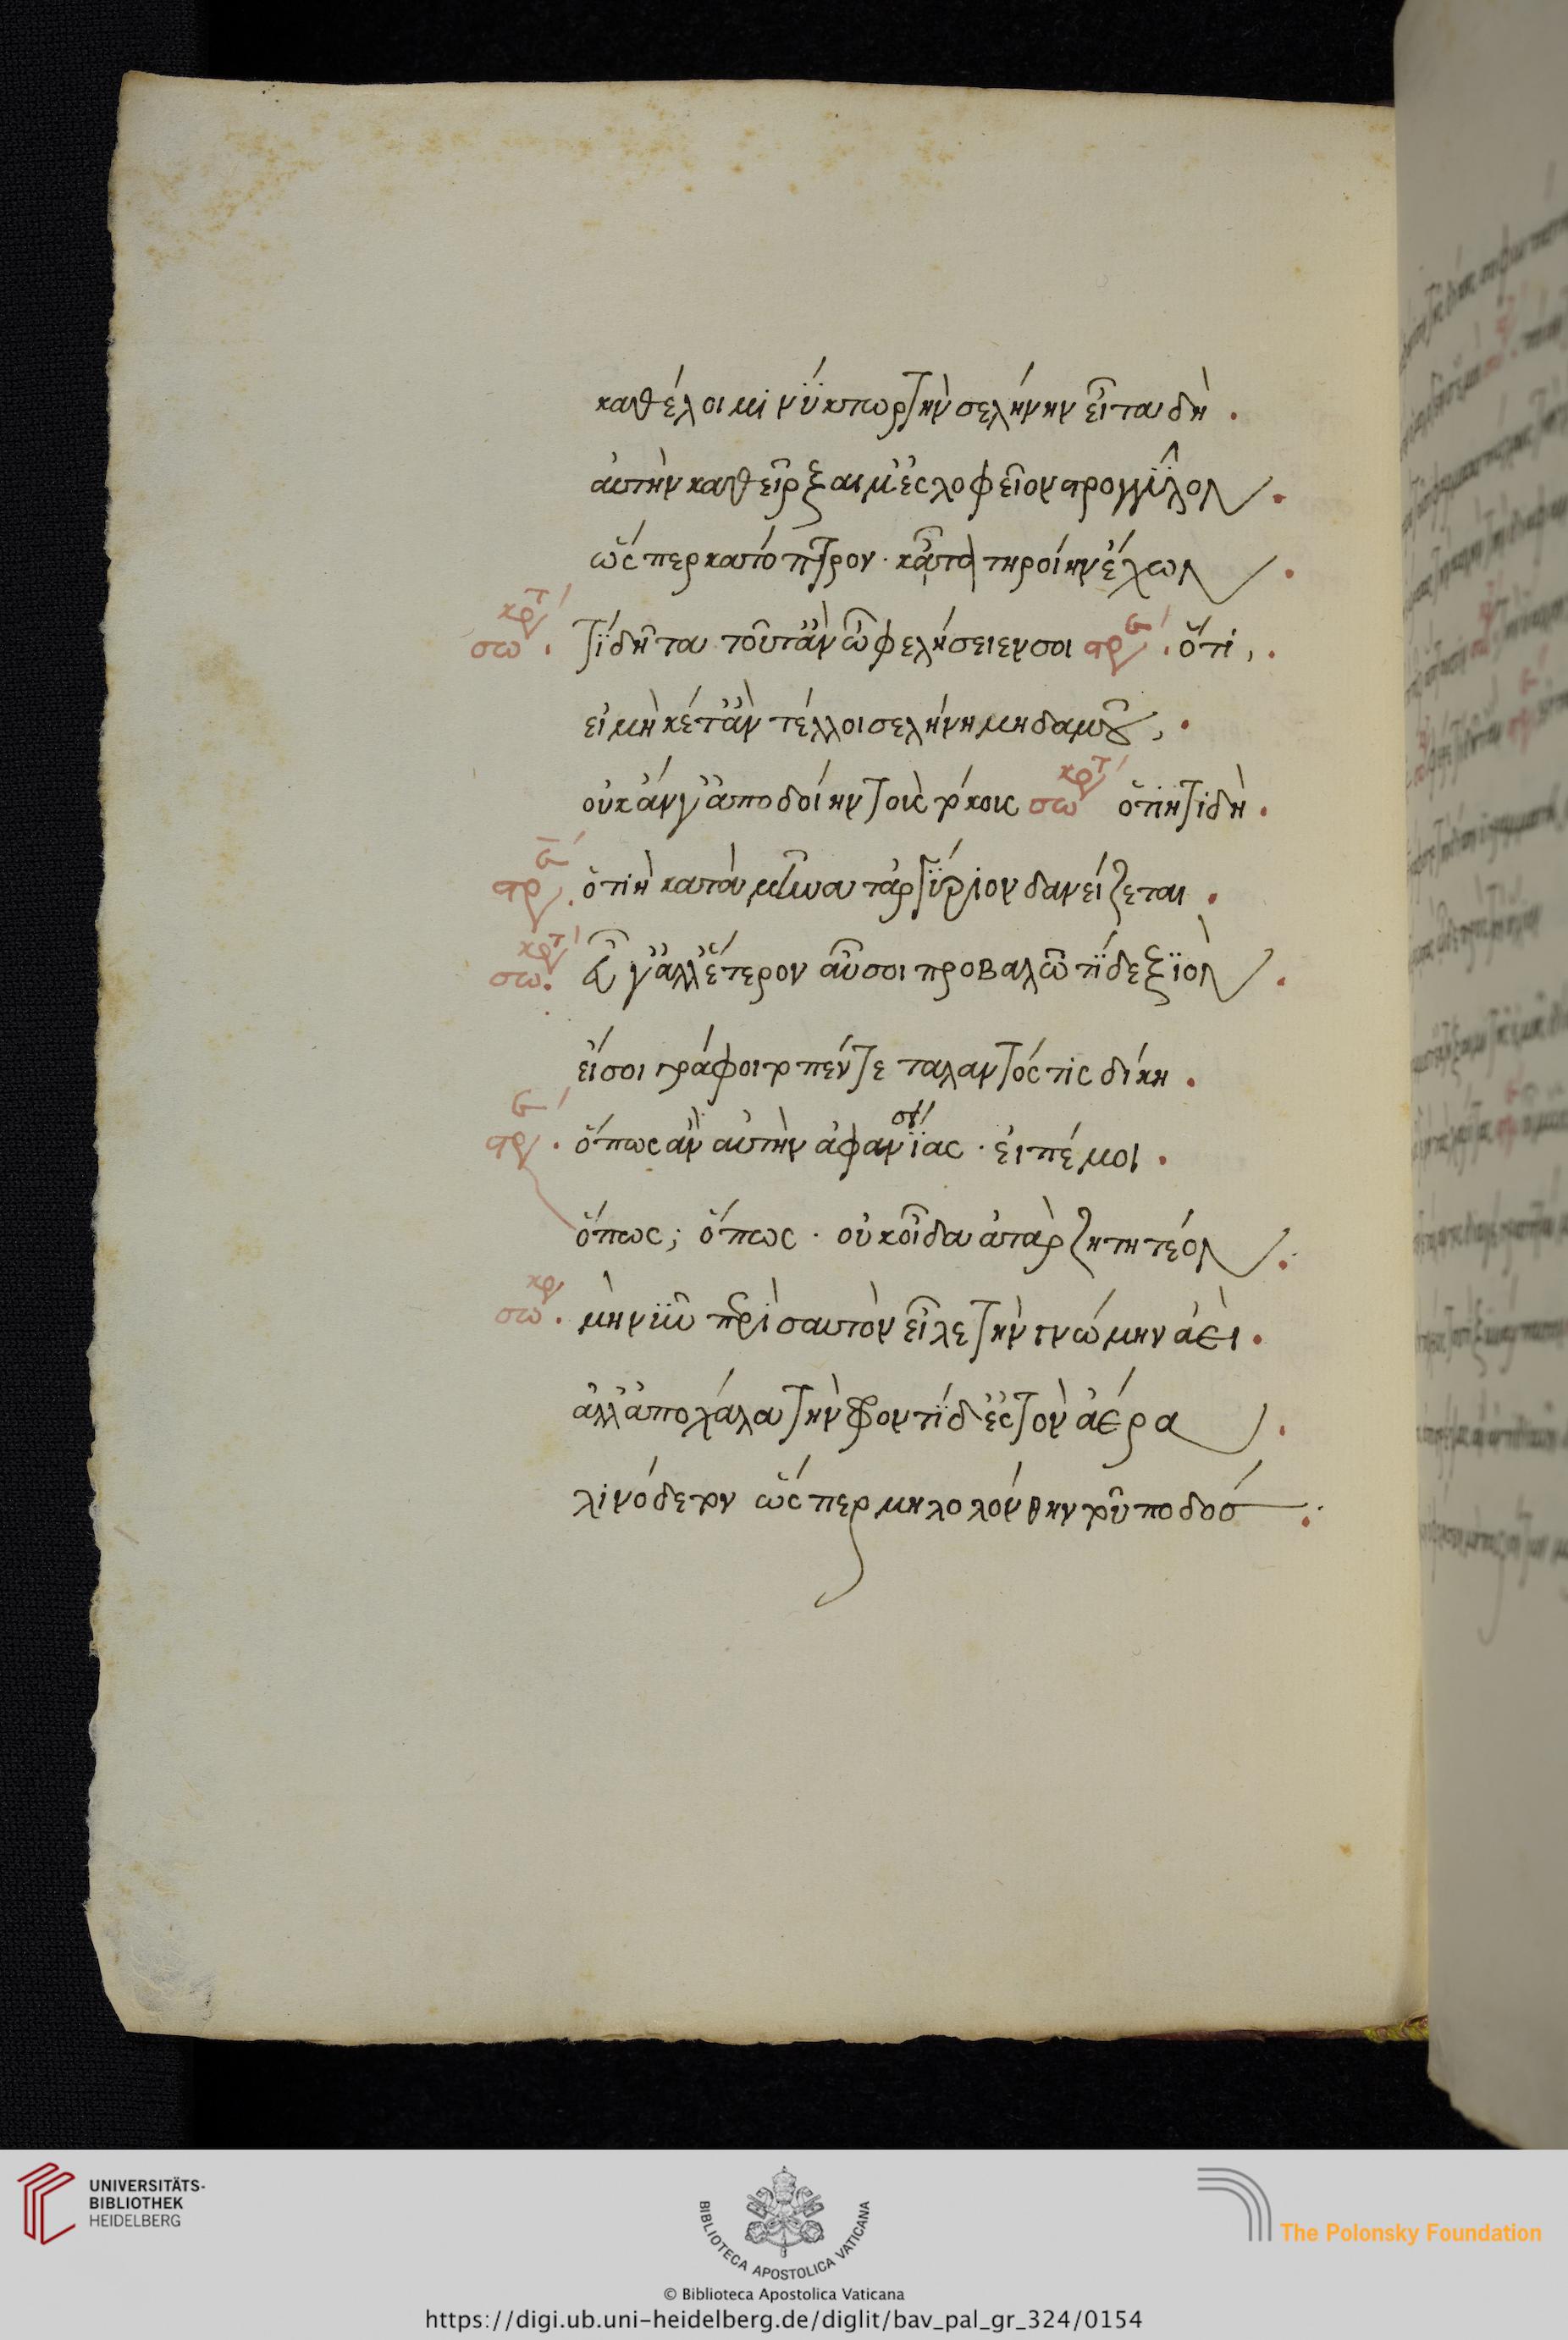 καθέλοιμι νύκτωρ τὴν σελήνην εἶτα δὴ .
αὐτὴν καθείρξαιμ' ἐς λοφεῖον στρογγῦλον .
ὥσπερ κάτοπτρον · κᾆτα τηροίην ἔχων .
σω κρτ . τί δῆτα τοῦτ' ἂν ὠφελήσειεν σοι στρ . ὅτι , .
εἰ μηκέτ' ἂν τέλλοι σελήνη μηδαμοῦ , .
οὐκ ἂν γ' ἀποδοίην τοὺς τόκους σω κρτ ὁτιὴ τί δὴ .
στρ . ὁτιὴ κατὰ μῆνα τἀργύριον δανείζεται .
σω κρτ . εὖ γ' ἀλλ' ἕτερον αὖ σοι προβαλῶ τί δεξιὸν .
εἴ σοι γράφοιτο πέντε ταλαντός τις δίκη .
στρ . ὅπως ἂν αὐτὴν ἀφανίσας · εἰπέ μοι .
ὅπως ; ὅπως · οὐκ οἶδα ἀτὰρ ζητητέον .
σω κρ . μὴ νῦν περὶ σαυτὸν εἶλε τὴν γνώμην ἀεὶ .
ἀλλ' ἀποχάλα τὴν φροντίδ' ἐς τὸν ἀέρα .
λινόδετον ὥσπερ μηλολόνθην τοῦ ποδός .
UNIVERSITÄTS-
BIBLIOTHEK
HEIDELBERG
BIBLIOTECA APOSTOLICA VATICANA
The Polonsky Foundation
© Biblioteca Apostolica Vaticana
https://digi.ub.uni-heidelberg.de/diglit/bav_pal_gr_324/0154